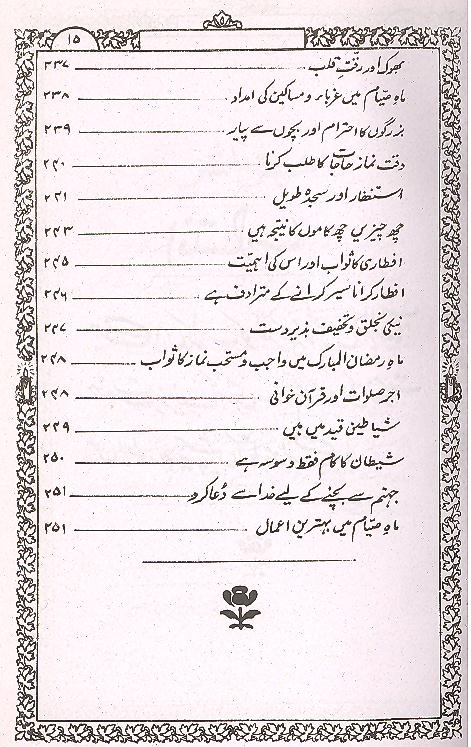 ۱۵
بھوک اور رقّتِ قلب ۲۳۷
ماہِ صیّام میں غرباء و مساکین کی امداد ۲۳۸
بزرگوں کا احترام اور بچوں سے پیار ۲۳۹
وقت نماز حاجات کا طلب کرنا ۲۴۰
استغفار اور سجدۂ طویل ۲۴۱
چھ چیزیں چھ کاموں کا نتیجہ ہیں ۲۴۳
افطاری کا ثواب اور اس کی اہمیّت ۲۴۵
افطار کرانا سیر کرانے کے مترادف ہے ۲۴۶
نیکی تخلق و تخفیف 2۴۷
ماہِ رمضان المبارک میں واجب و مستحب نماز کا ثواب ۲۴۸
اجرِ صلوات اور قرآن خوانی ۲۴۸
شیاطین قید میں ہیں ۲۴۹
شیطان کا کام فقط وسوسہ ہے ۲۵۰
جہنّم سے بچنے کے لیے خدا سے دُعا کرو ۲۵۱
ماہِ صیّام میں بہترین اعمال ۲۵۱